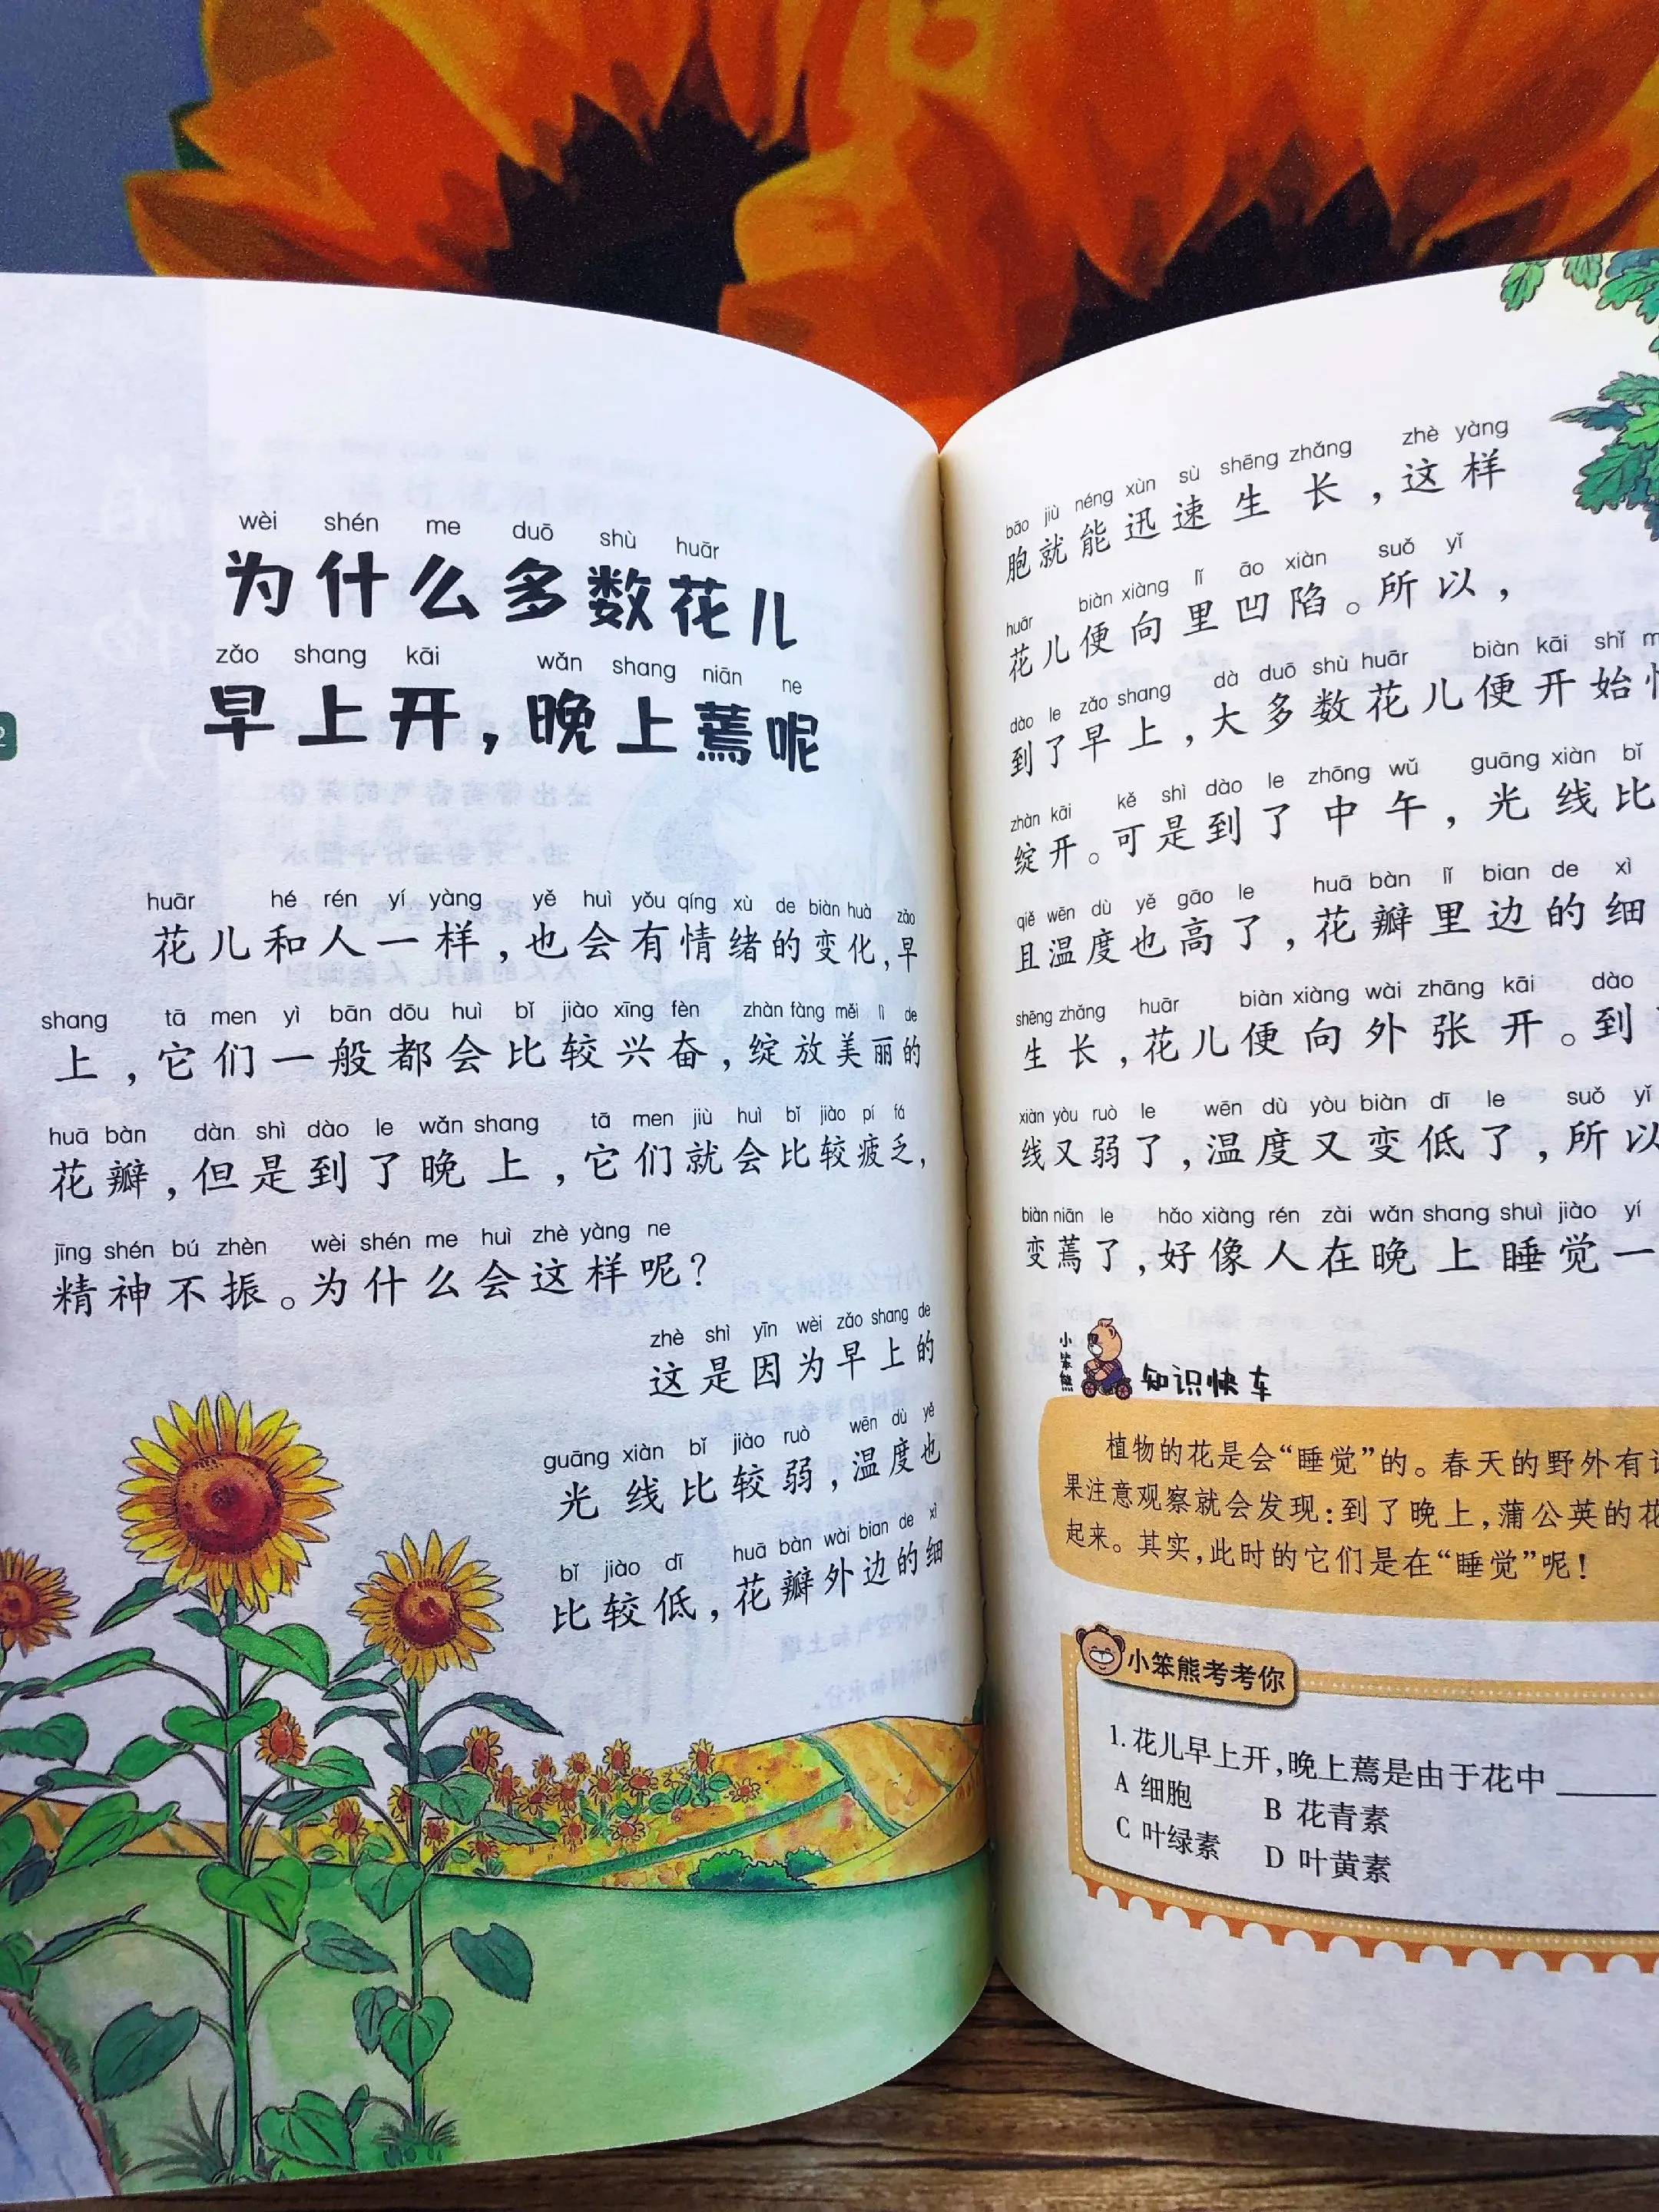 wèi shén me duō shù huār
为什么多数花儿
zǎo shang kāi wǎn shang niān ne
早上开，晚上蔫呢
huār hé rén yí yàng yě huì yǒu qíng xù de biàn huà zǎo
花儿和人一样，也会有情绪的变化，早
shang tā men yì bān dōu huì bǐ jiào xīng fèn zhàn fàng měi lì de
上，它们一般都会比较兴奋，绽放美丽的
huā bàn dàn shì dào le wǎn shang tā men jiù huì bǐ jiào pí fá
花瓣，但是到了晚上，它们就会比较疲乏，
jīng shén bú zhèn wèi shén me huì zhè yàng ne
精神不振。为什么会这样呢？
zhè shì yīn wèi zǎo shang de
这是因为早上的
guāng xiàn bǐ jiào ruò wēn dù yě
光线比较弱，温度也
bǐ jiào dī huā bàn wài bian de xì
比较低，花瓣外边的细
bāo jiù néng xùn sù shēng zhǎng zhè yàng
胞就能迅速生长，这样
huār biàn xiàng lǐ āo xiàn suǒ yǐ
花儿便向里凹陷。所以，
dào le zǎo shang dà duō shù huār biàn kāi shǐ
到了早上，大多数花儿便开始
zhàn kāi kě shì dào le zhōng wǔ guāng xiàn bǐ
绽开。可是到了中午，光线比
qiě wēn dù yě gāo le huā bàn lǐ bian de xì
且温度也高了，花瓣里边的细
shēng zhǎng huār biàn xiàng wài zhāng kāi dào
生长，花儿便向外张开。到
xiàn yòu ruò le wēn dù yòu biàn dī le suǒ yǐ
线又弱了，温度又变低了，所以
biàn niān le hǎo xiàng rén zài wǎn shang shuì jiào yí
变蔫了，好像人在晚上睡觉一
小笨熊
知识快车
植物的花是会“睡觉”的。春天的野外有
果注意观察就会发现：到了晚上，蒲公英的花
起来。其实，此时的它们是在“睡觉”呢！
小笨熊考考你
1. 花儿早上开，晚上蔫是由于花中
A 细胞 B 花青素
C 叶绿素 D 叶黄素